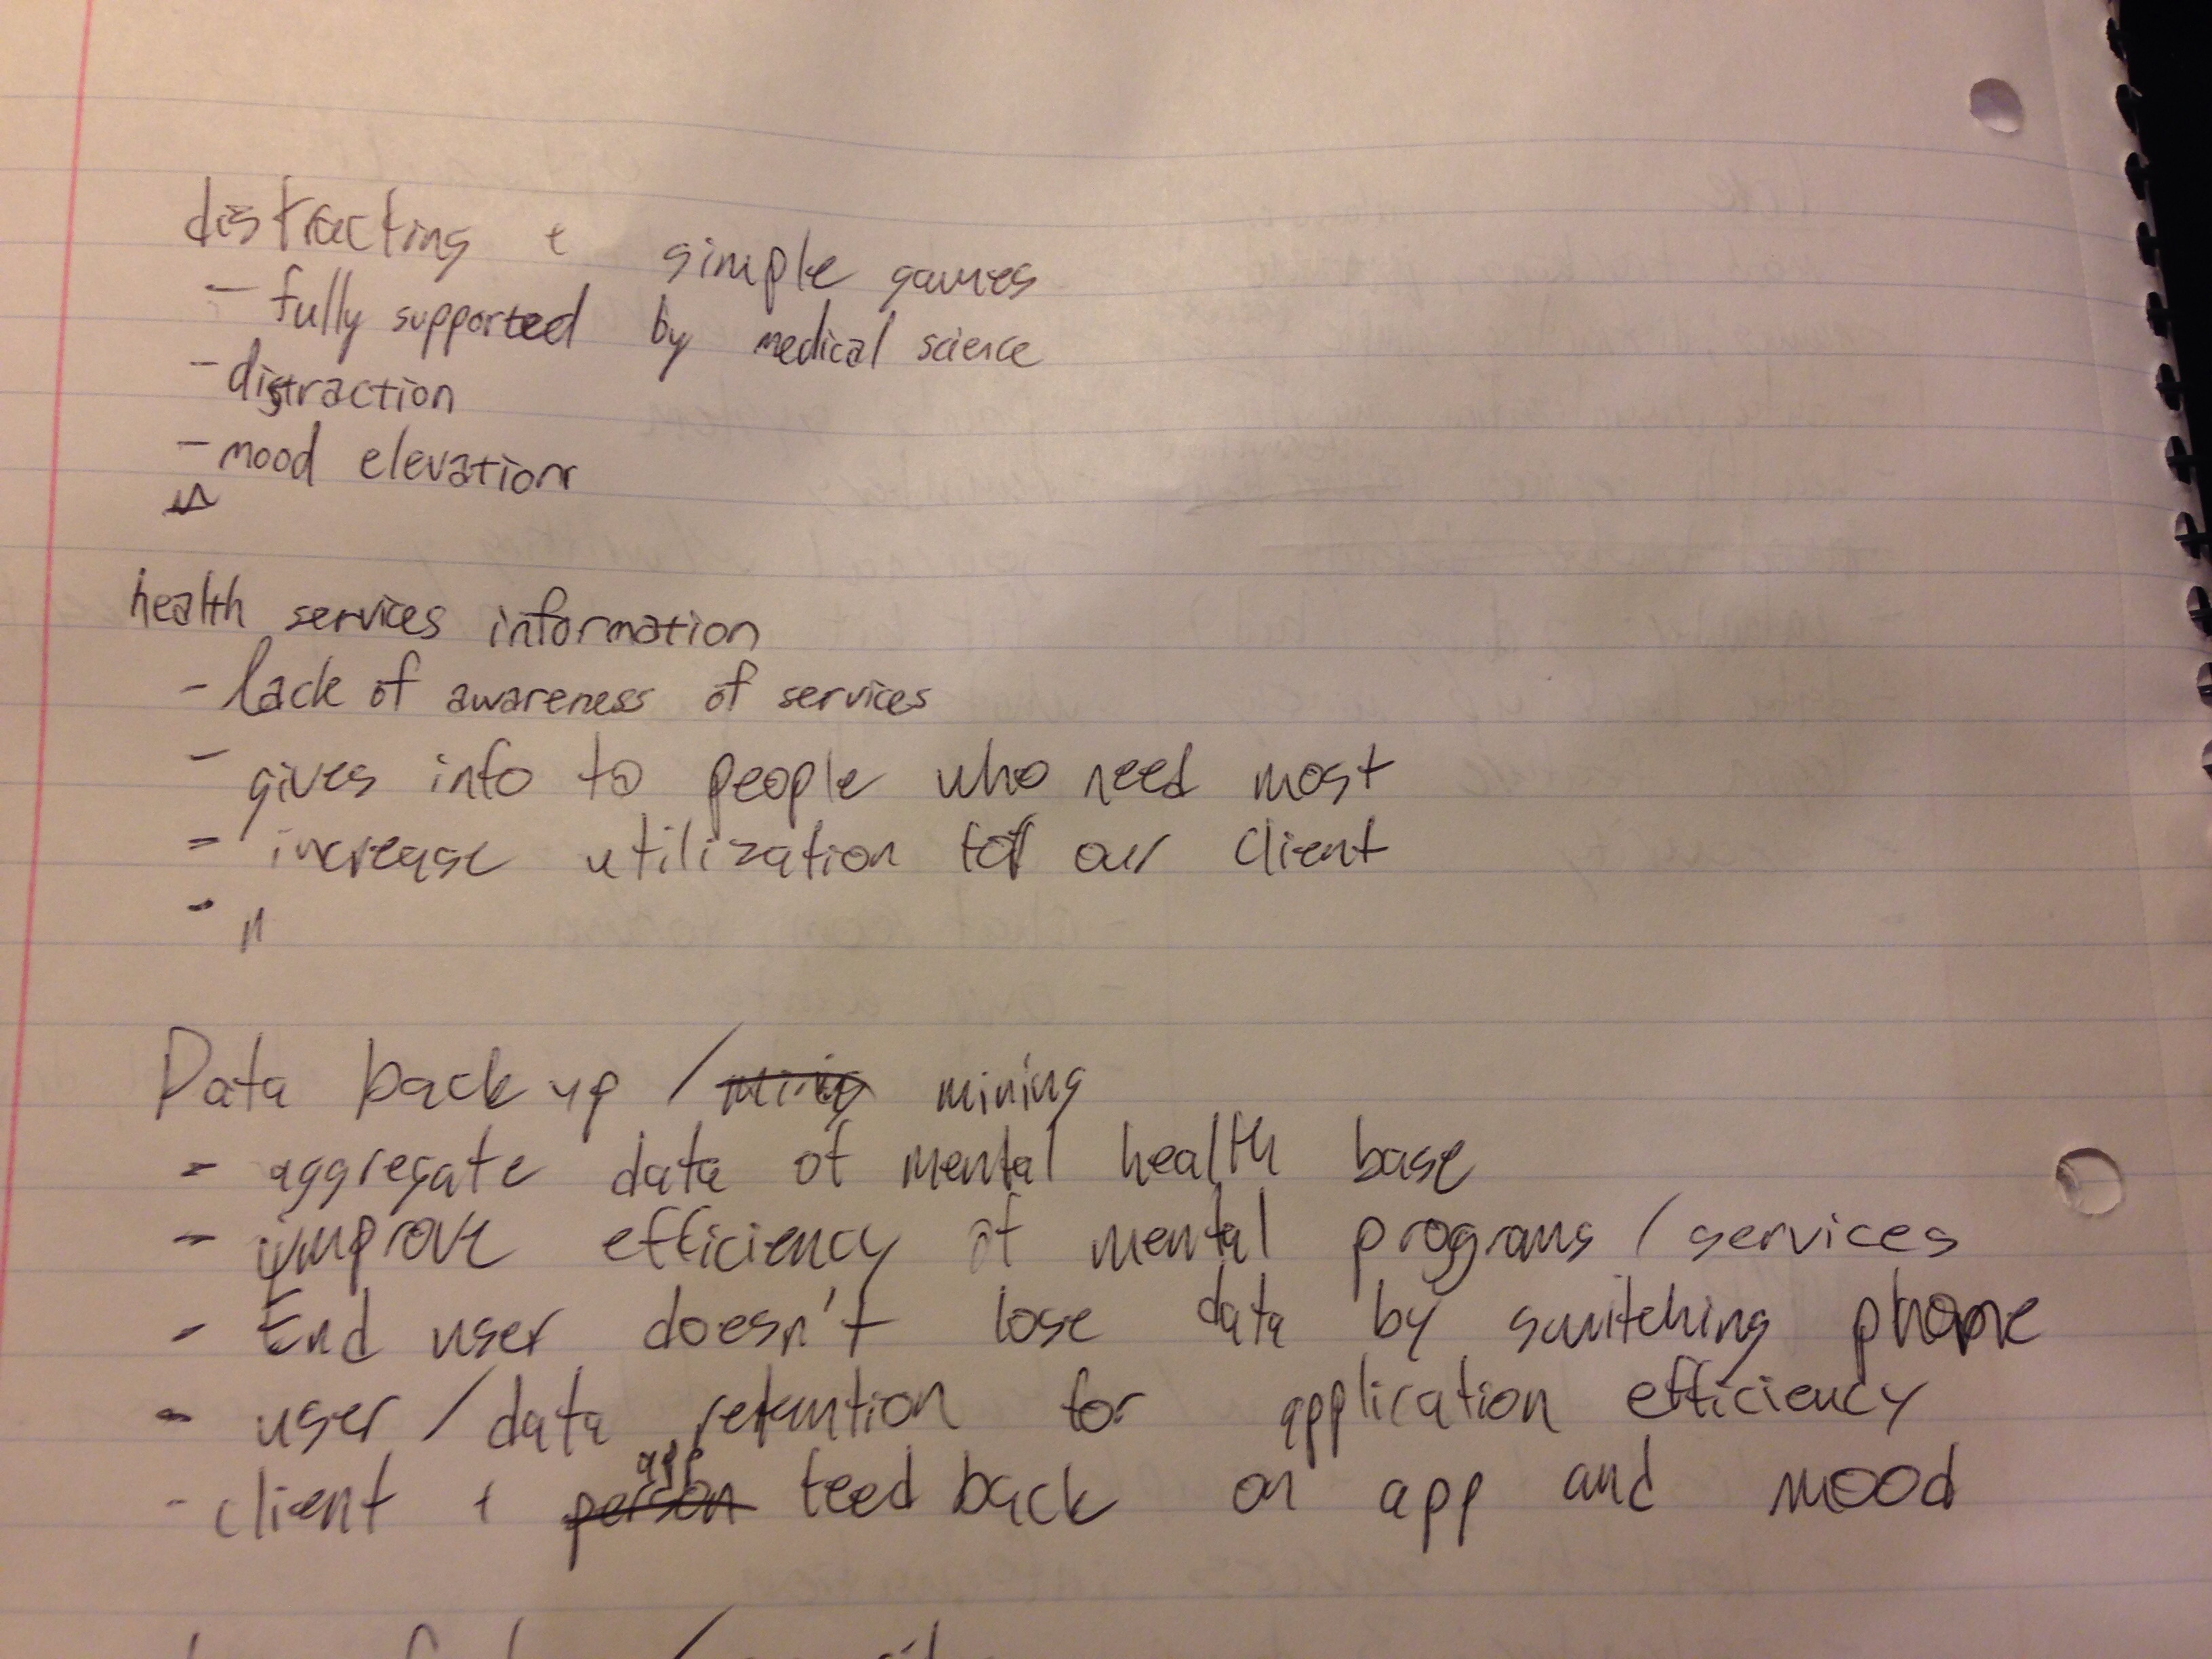 distracting + simple games
- fully supported by medical science
- distraction
- mood elevation
health services information
- lack of awareness of services
- gives info to people who need most
= increase utilization for our client
- "
Data back up / mining
- aggregate data of mental health base
- improve efficiency of mental programs / services
- End user doesn't lose data by switching phone
- user / data retention for application efficiency
- client + app feed back on app and mood